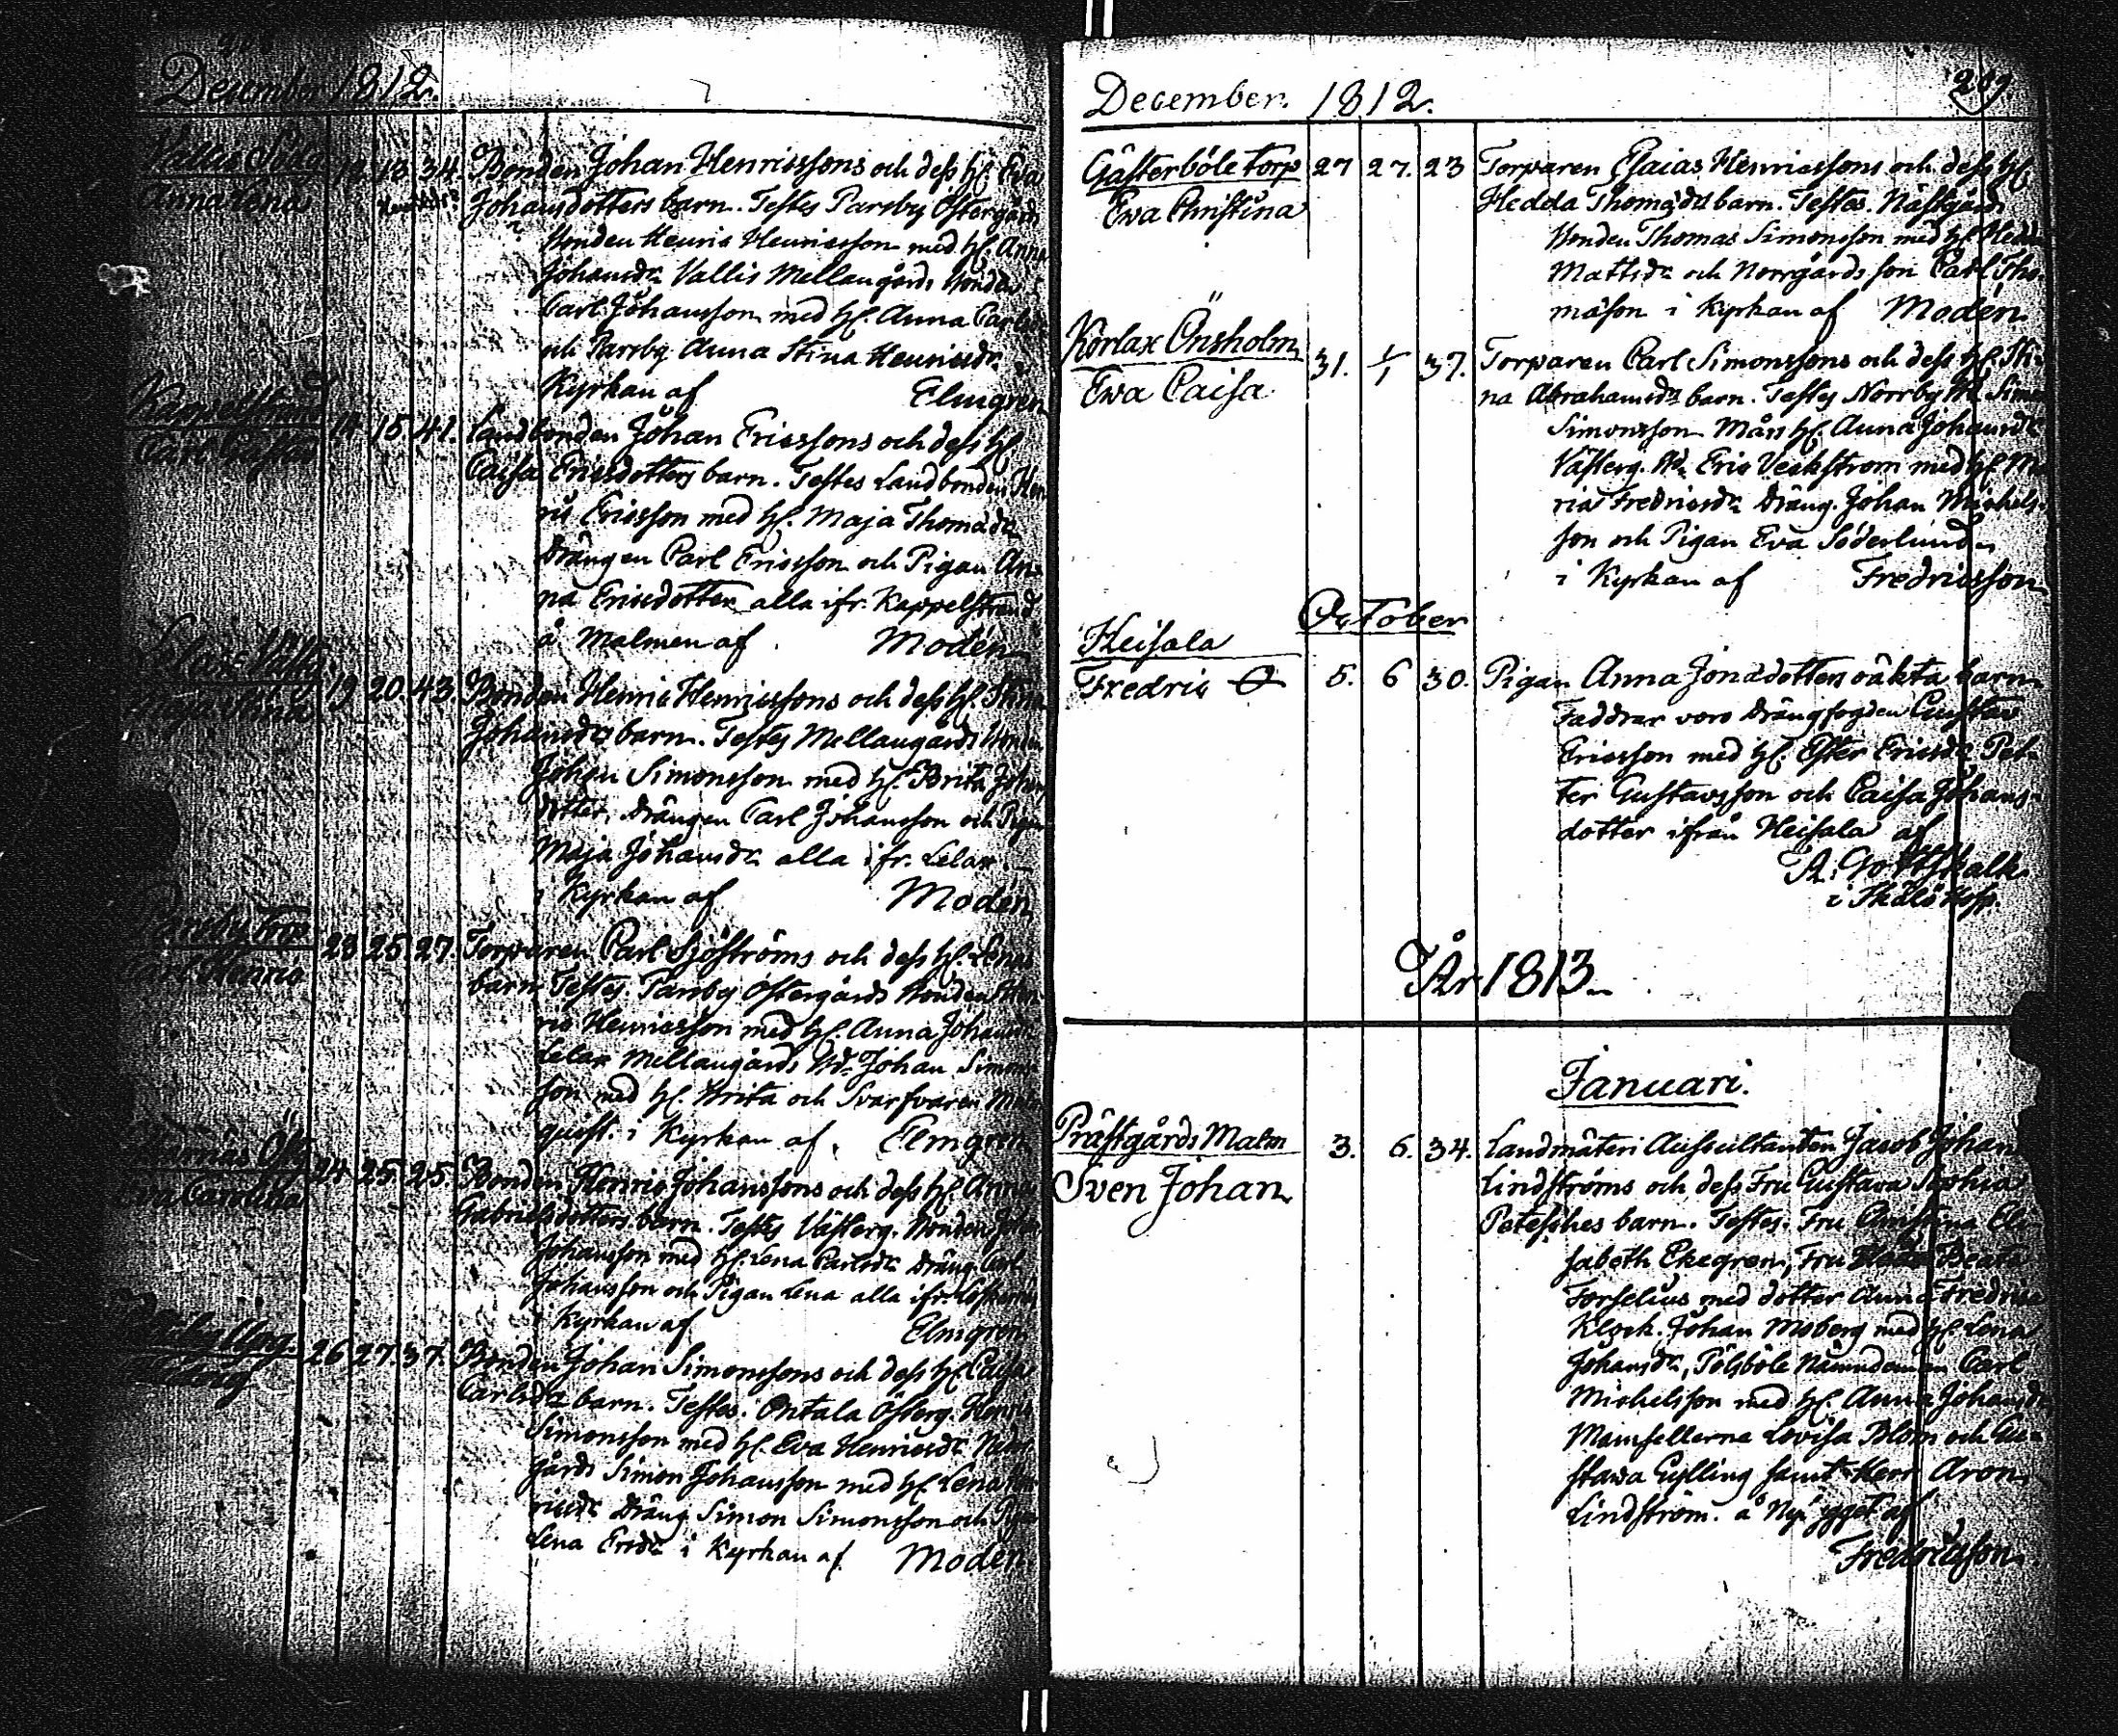 December 1812.
Vallis Söderg. 12. 13. 34. Bonden Johan Henricssons och dess H. Eva
Anna Lena Johansdotters barn. Testes Parsby Östergårds
Bonden Henric Henricsson med H. Anna
Johansdr Vallis Mellangårds Bonden
Carl Johansson med H. Anna Carlsdr
och Parsby Anna Stina Henricsdr
Kyrkan af Elmgren
Kappelstrand
Carl Gustav 14. 15. 41. Landbonden Johan Ericssons och dess H.
Caisa Ericsdotters barn. Testes Landbonden Hen-
ric Ericsson med H. Maja Thomadr
Drängen Carl Ericsson och Pigan An-
na Ericsdotter alla ifr. Kappelstrand
å Malmen af Modén
Lelax
Maja Stina 19. 20. 43. Bonden Henric Henricssons och dess H. Stina
Johansdrs barn. Testes Mellangårds Bonden
Johan Simonsson med H. Brita Johans
dotter, Drängen Carl Johansson och Pigan
Maja Johansdr alla ifr. Lelax
i Kyrkan af Modén
Parsby Torp 23 25 27. Torparen Carl Sjöströms och dess H. Lenas
Carl Henric barn Testes. Parsby Östergårds Bonden Hen-
ric Henricsson med H. Anna Johansdr
Lelax Mellangårds Bd. Johan Simons
son med H. Brita och Svarfvaren
quist. i Kyrkan af. Elmgren
24 25. 25. Bonden Henric Johanssons och dess H. Annas
Eva Carolina Gabrielsdotters barn. Testes Västerg. Bonden Johan
Johansson med H. Lena Carlsdr Dräng. Carl
Johansson och Pigan Lena alla ifr.
i Kyrkan af Elmgren
26 27. 37. Bonden Johan Simonssons och dess H. Caisa
Hedvig Carlsdrs barn. Testes. Ontala Österg. Henric
Simonsson med H. Eva Henricsdr
gårds Simon Johansson med H. Lena Hen
ricsdr Dräng Simon Simonsson och Pigan
Lena Ersdr i Kyrkan af Modén.
December. 1812. 209
Gästerböle Torp 27 27. 23 Torparen Esaias Henricssons och dess H.
Ewa Christina Hedda Thomadrs barn. Testes. Nästgårds
Bonden Thomas Simonsson med H. Hedda
Mattsdr och Norrgårds son Carl Tho-
mäson i Kyrkan af Modén
Korlax Önsholm 31. 1/1 37. Torparen Carl Simonssons och dess H. Sti-
Ewa Caisa na Abrahamsdrs barn. Testes Norrby Bd. Simon
Simonsson Mårs H. Anna Johansdr
Västerg. Bd. Eric Veckstrom med H. Ma
ria Fredricsdr Dräng. Johan Michels-
son och Pigan Eva Söderlund
i Kyrkan af Fredricsson
October
Heisala
Fredric 5. 6 30. Pigan Anna Jonadotters oäkta barn
Faddrar voro Drängfogden Gustav
Ericsson med H. Ester Ericsdr Pet-
ter Gustavsson och Caisa Johans-
dotter ifrån Heisala af
A. Gottskalk
År 1813.
Januari.
Prästgårds Malm 3. 6. 34. Landmäteri Auscultanten Jacob Johan
Sven Johan Lindströms och dess Fru Gustava Sophia
Patesches barn. Testes. Fru Christina Eli-
sabeth Ekegren, Fru Beata
Forselius med dotter Anna Fredrica
Klock. Johan Moberg med H. Lena
Johansdr, Pölsböle Nämndeman Carl
Michelsson med H. Anna Johansdr
Mamsellerna Lovisa Blom och Gu-
stava Gylling samt Herr Aron
Lindström. å Nybygget af
Fredricsson